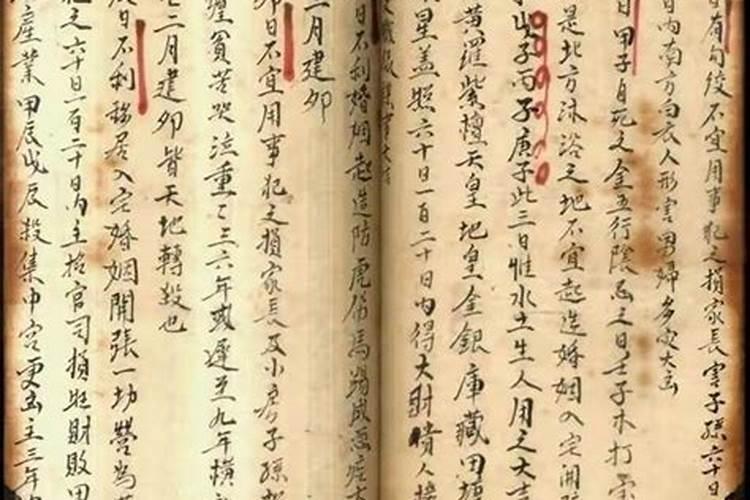 日有勾絞不宜用事犯之損家長害子孫六十日
日內南方白衣人形害男婦多安大凶
日甲子自死之金五行陰忌之日壬子木打
是北方沐浴之地不宜起造婚姻入宅開
子丙子庚子此三日惟水土生人用之大吉
黃羅紫檀天皇地皇金銀庫藏田塘
星蓋照六十日一百二十日內得大財貴人接
日不利婚姻起造防虎傷馬踢成
二月建卯
卯日不宜用事犯之損家長及小房子孫
纏貧苦哭泣重重三六年或遲至九年橫
二月建卯皆天地轉殺也
日不利移居入宅婚姻開張一切營為
犯之六十日一百二十日內主招官司損財敗田
產業甲辰戊辰殺集中宮更凶主三年